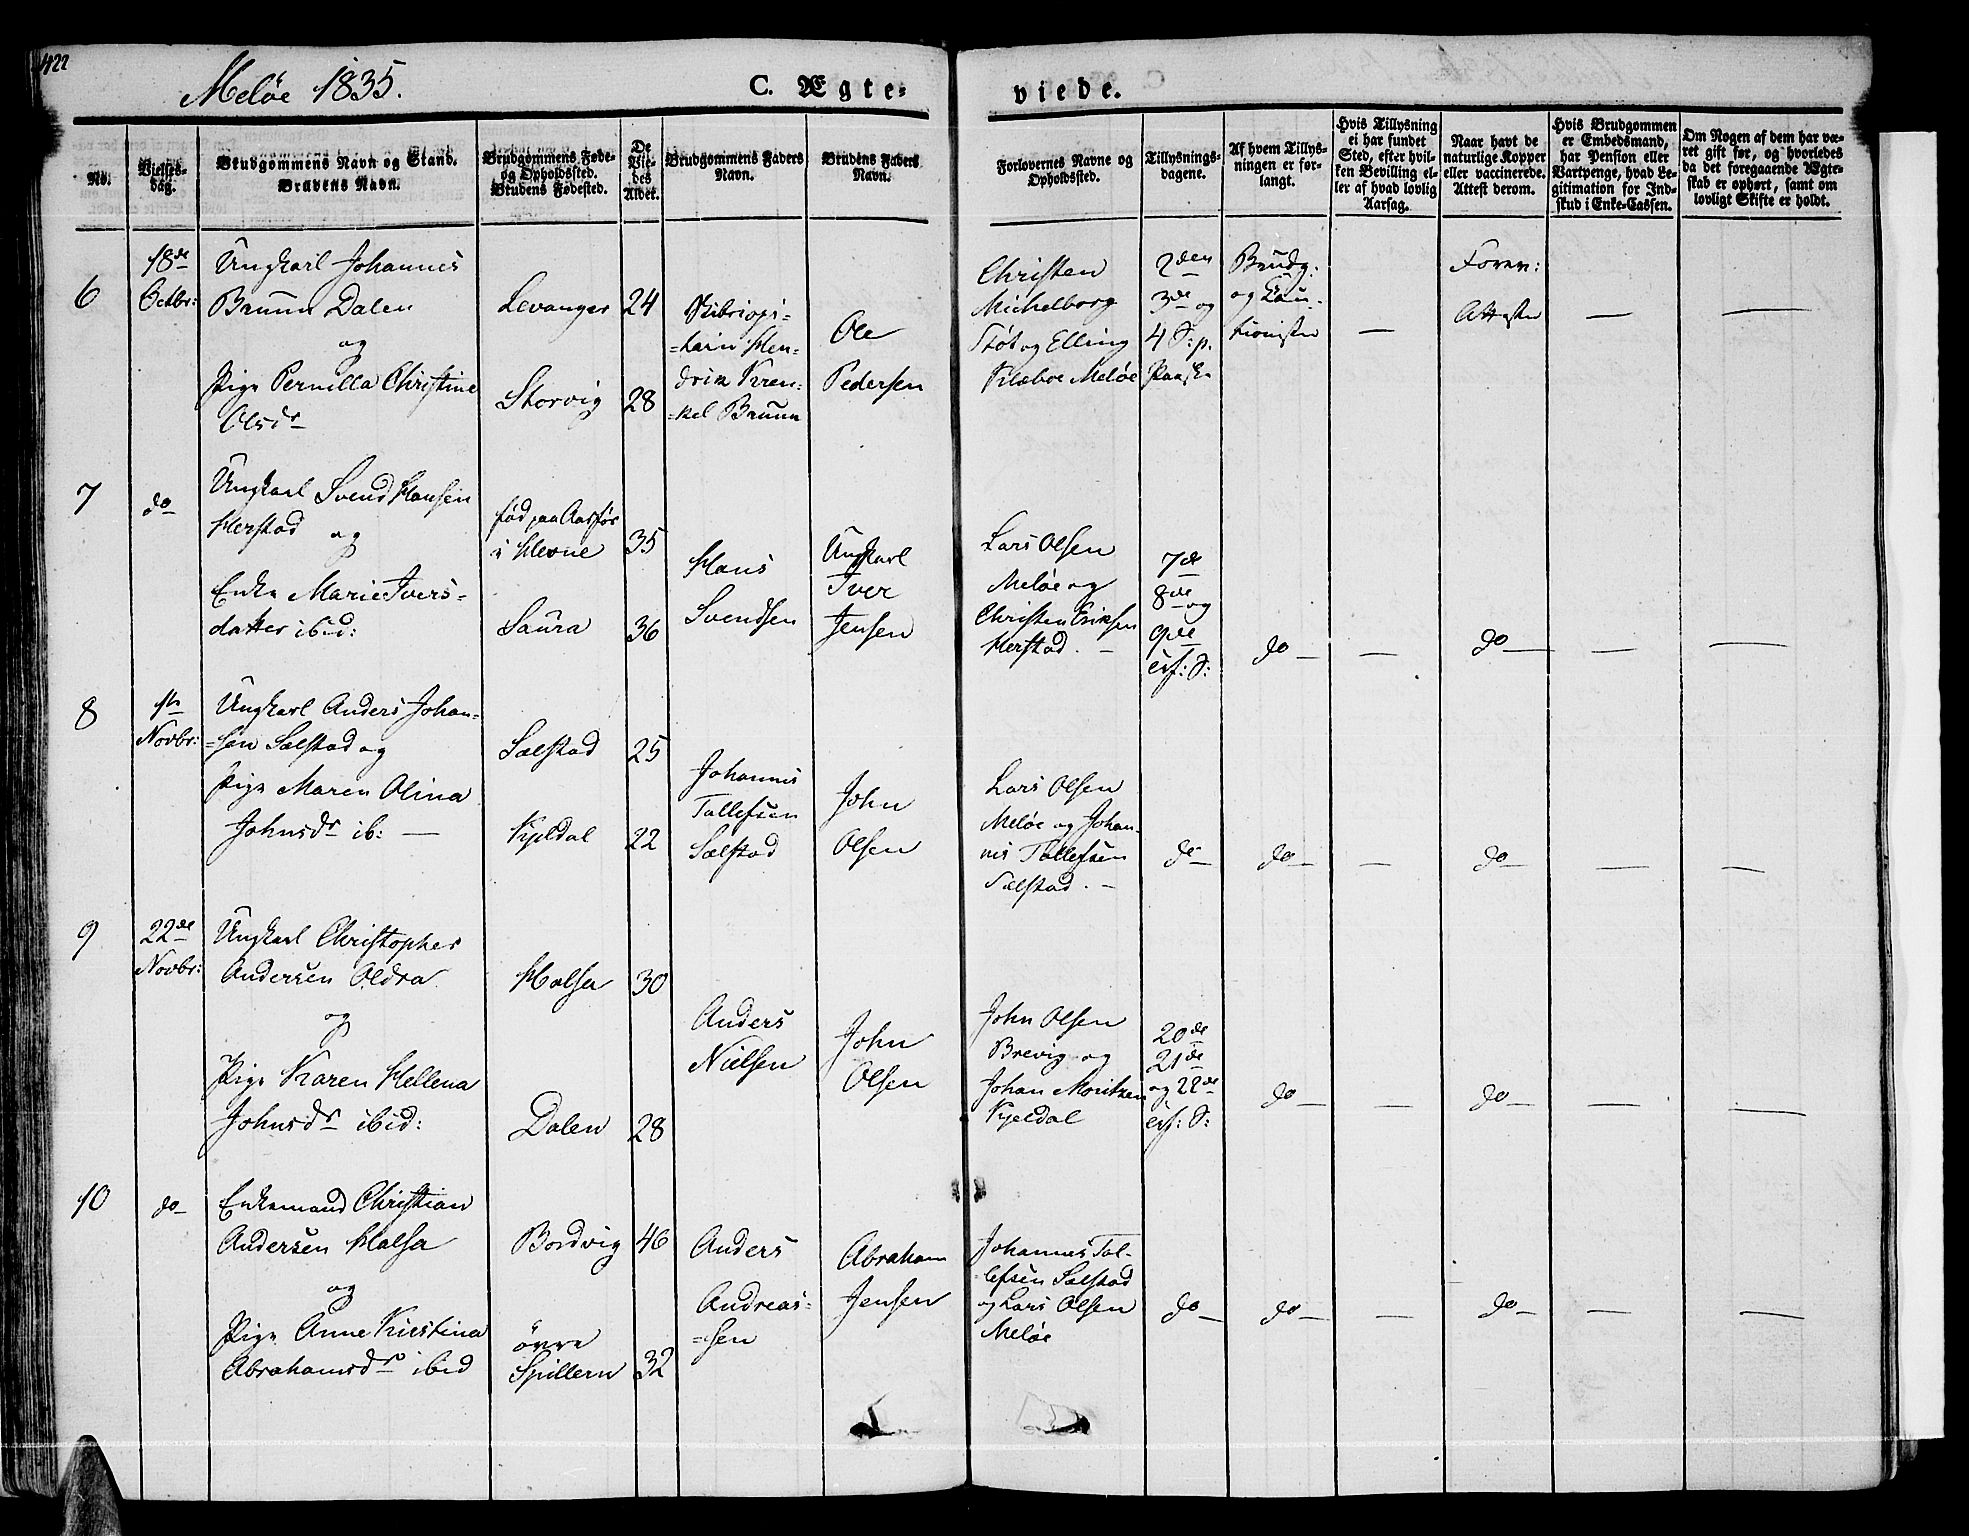 422
Meløe 1835.
C. Ægte-
viede.
No.
Vielses-
dag.
Brudgommens Navn og Stand.
Brudens Navn.
Brudgommens Føde-
og Opholdssted.
Brudens Fødested.
De
Vie-
des
Alder.
Brudgommens Faders
Navn.
Brudens Faders
Navn.
Forlovernes Navne og
Opholdssted.
Tillysnings-
dagene.
Af hvem Tillys-
ningen er for-
langt.
Hvis Tillysning
ei har fundet
Sted, efter hvil-
ken Bevilling el-
ler af hvad lovlig
Aarsag.
Naar havt de
naturlige Kopper
eller vaccinerede.
Attest derom.
Hvis Brudgommen
er Embedsmand,
har Pension eller
Vartpenge, hvad Le-
gitimation for Ind-
skud i Enke-Cassen.
Om Nogen af dem har væ-
ret gift før, og hvorledes
da det foregaaende Ægte-
skab er ophørt, samt om
lovligt Skifte er holdt.
6
18de
Octbr:
Ungkarl Johannes
Bruun Dalen
og
Pige Pernilla Christine
Olsdr
Levanger
Storvig
24
28
Hen-
drik Kren-
kel Bruun
Ole
Pedersen
Christen
Michelborg
Støt og Elling
Klæboe Meløe
2den
3de og
4 S: p.
Paaske
Brudg:
og Cau-
tionister
—
Forev:
Attester
—
—
7
do
Ungkarl Svend Hansen
Herstad og
Enke Marie Ivers-
datter ibid:
fød paa
i Hevne
Saura
35
36
Hans
Svendsen
Ungkarl
Iver
Jensen
Lars Olsen
Meløe og
Christen Eriksen
Herstad. —
7de
8de og
9de
S:
do —
—
do —
—
—
8
1ste
Novbr:
Ungkarl Anders Johan-
=sen Sælstad og
Pige Maren Olina
Johnsdr ib: —
Sælstad
Kjeldal
25
22
Johannes
Tollefsen
Sælstad
John
Olsen
Lars Olsen
Meløe og Johan-
nes Tollefsen
Sælstad. —
do —
do —
—
do —
—
—
9
22de
Novbr:
Ungkarl Christopher
Andersen Oldra
og
Pige Karen Hellena
Johnsdr ibid:
Halsa
Dalen
30
28
Anders
Nielsen
John
Olsen
John Olsen
Brevig og
Johan Moritzen
Kjeldal
20de
21de
og 22de
S:
do —
—
do —
—
—
10
do
Enkemand Christian
Andersen Halsa
og
Pige Anne Kirstina
Abrahamsdr ibid
Bordvig
øvre
Spilderen
46
32
Anders
Andreas-
=sen
Abraham
Jensen
Johannes Tol-
lefsen Sælstad
og Lars Olsen
Meløe
do —
do —
—
do —
—
—